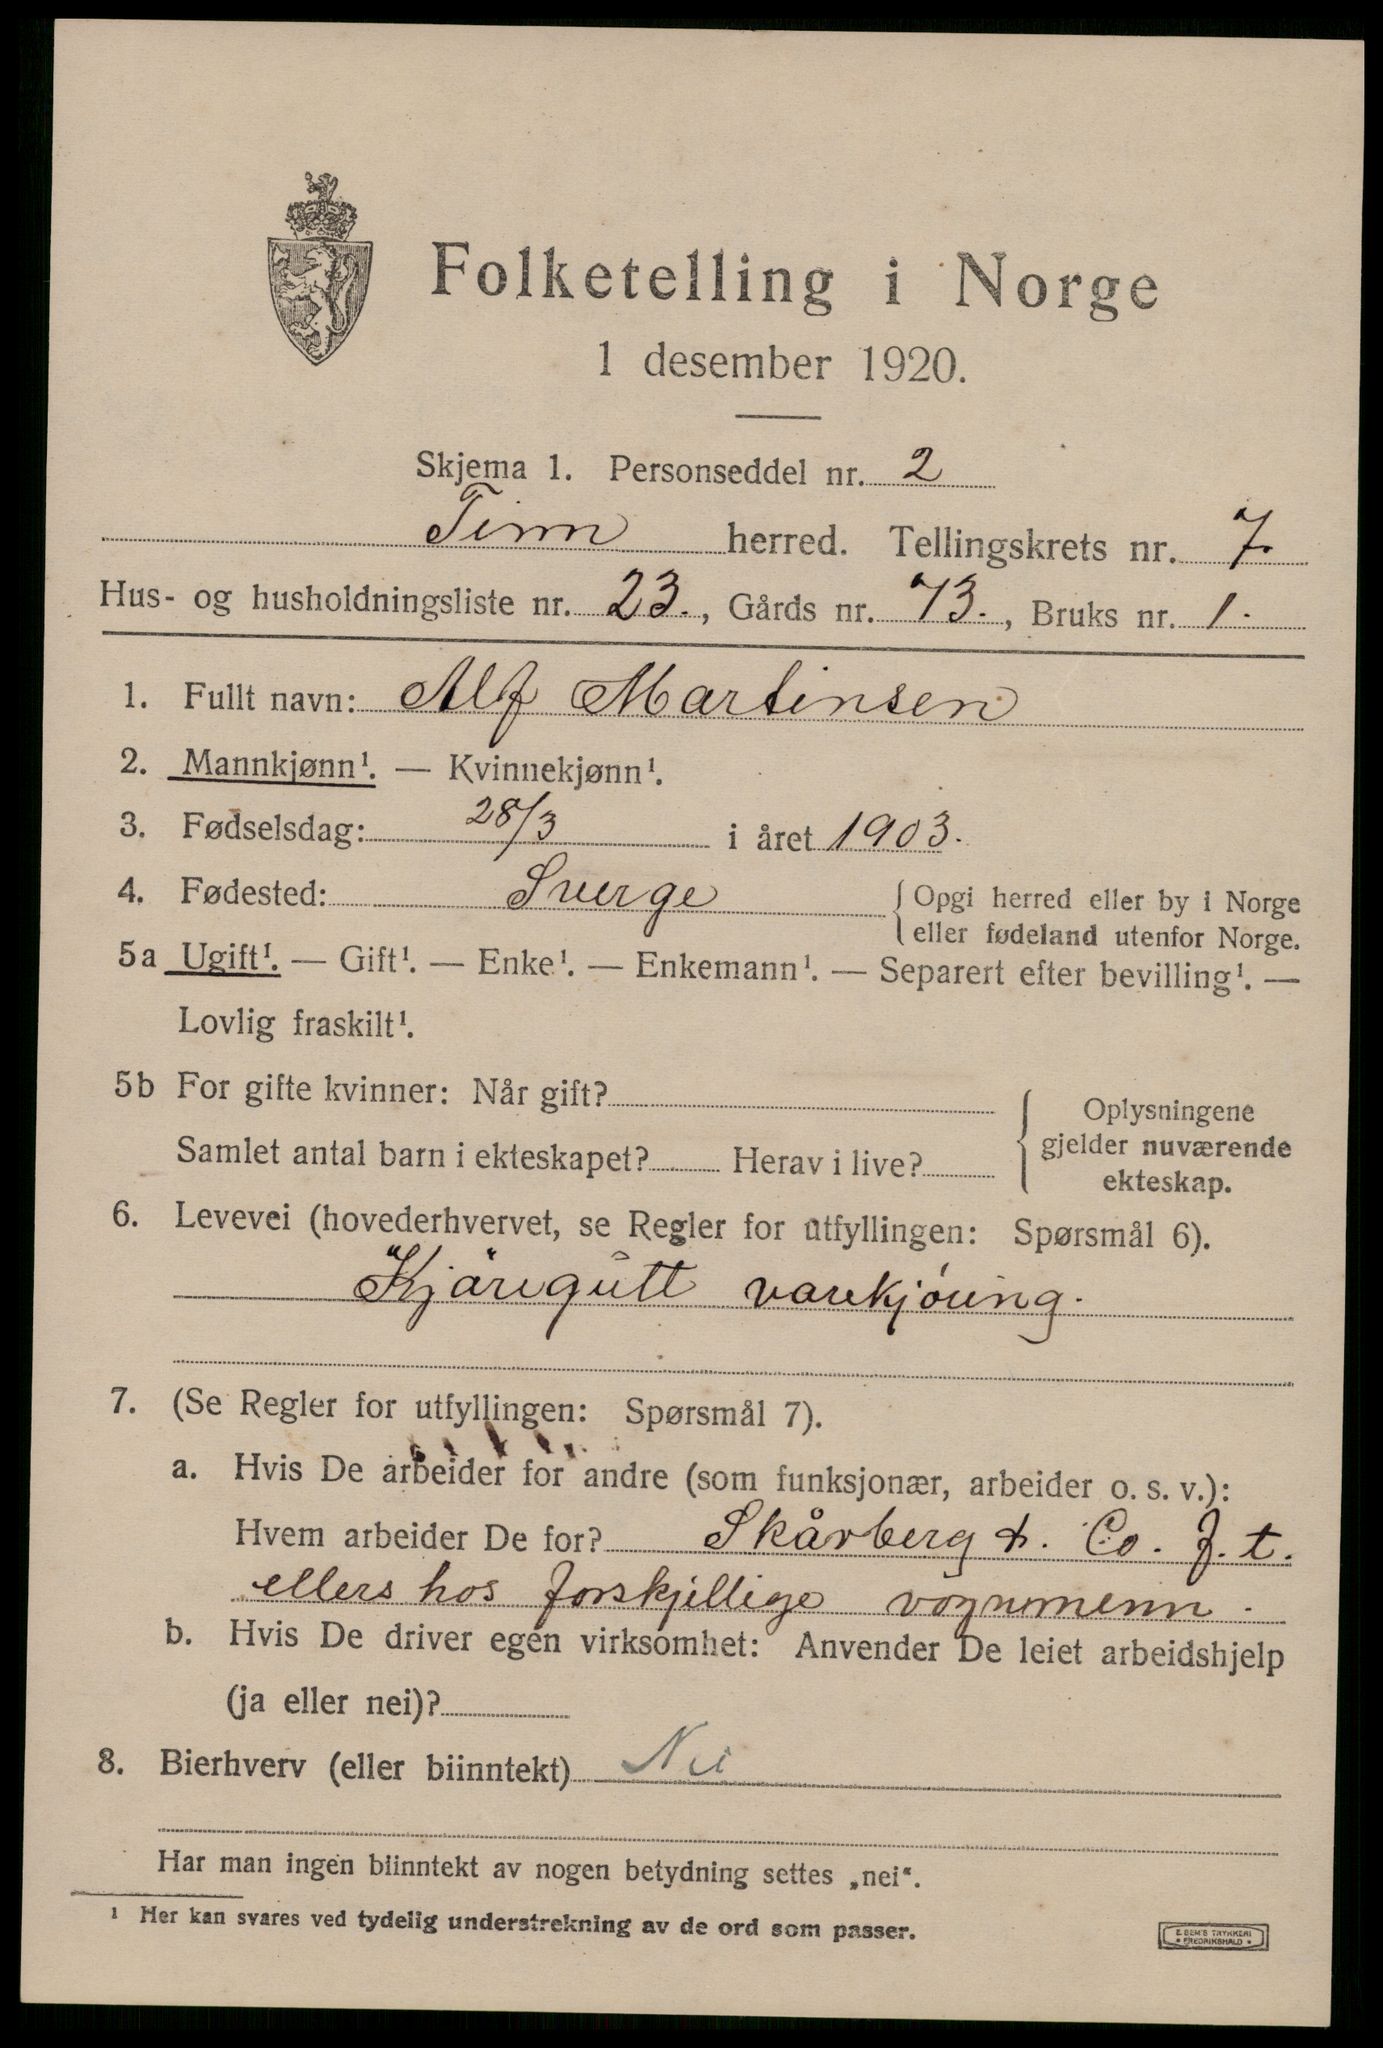 Folketelling i Norge
1 desember 1920.
Skjema 1. Personseddel nr. 2
Tinn herred. Tellingskrets nr. 7.
Hus- og husholdningsliste nr. 23., Gårds nr. 73., Bruks nr. 1.
1. Fullt navn: Alf Martinsen
2. Mannkjønn¹. — Kvinnekjønn¹.
3. Fødselsdag: 28/3 i året 1903.
4. Fødested: Sverge { Opgi herred eller by i Norge
eller fødeland utenfor Norge.
5a Ugift¹. — Gift¹. — Enke¹. — Enkemann¹. — Separert efter bevilling¹. —
Lovlig fraskilt¹.
5b For gifte kvinner: Når gift?
Samlet antal barn i ekteskapet? Herav i live?
{ Oplysningene
gjelder nuværende
ekteskap.
6. Levevei (hovederhvervet, se Regler for utfyllingen: Spørsmål 6).
Kjöregutt varekjöring.
7. (Se Regler for utfyllingen: Spørsmål 7).
a. Hvis De arbeider for andre (som funksjonær, arbeider o. s. v.):
Hvem arbeider De for? Skårberg &. Co. f. t.
ellers hos forskjellige vognmenn.
b. Hvis De driver egen virksomhet: Anvender De leiet arbeidshjelp
(ja eller nei)?
8. Bierhverv (eller biinntekt) Nei
Har man ingen biinntekt av nogen betydning settes „nei“.
¹ Her kan svares ved tydelig understrekning av de ord som passer.
E SEM'S TRYKKERI
• FREDRIKSHALD •